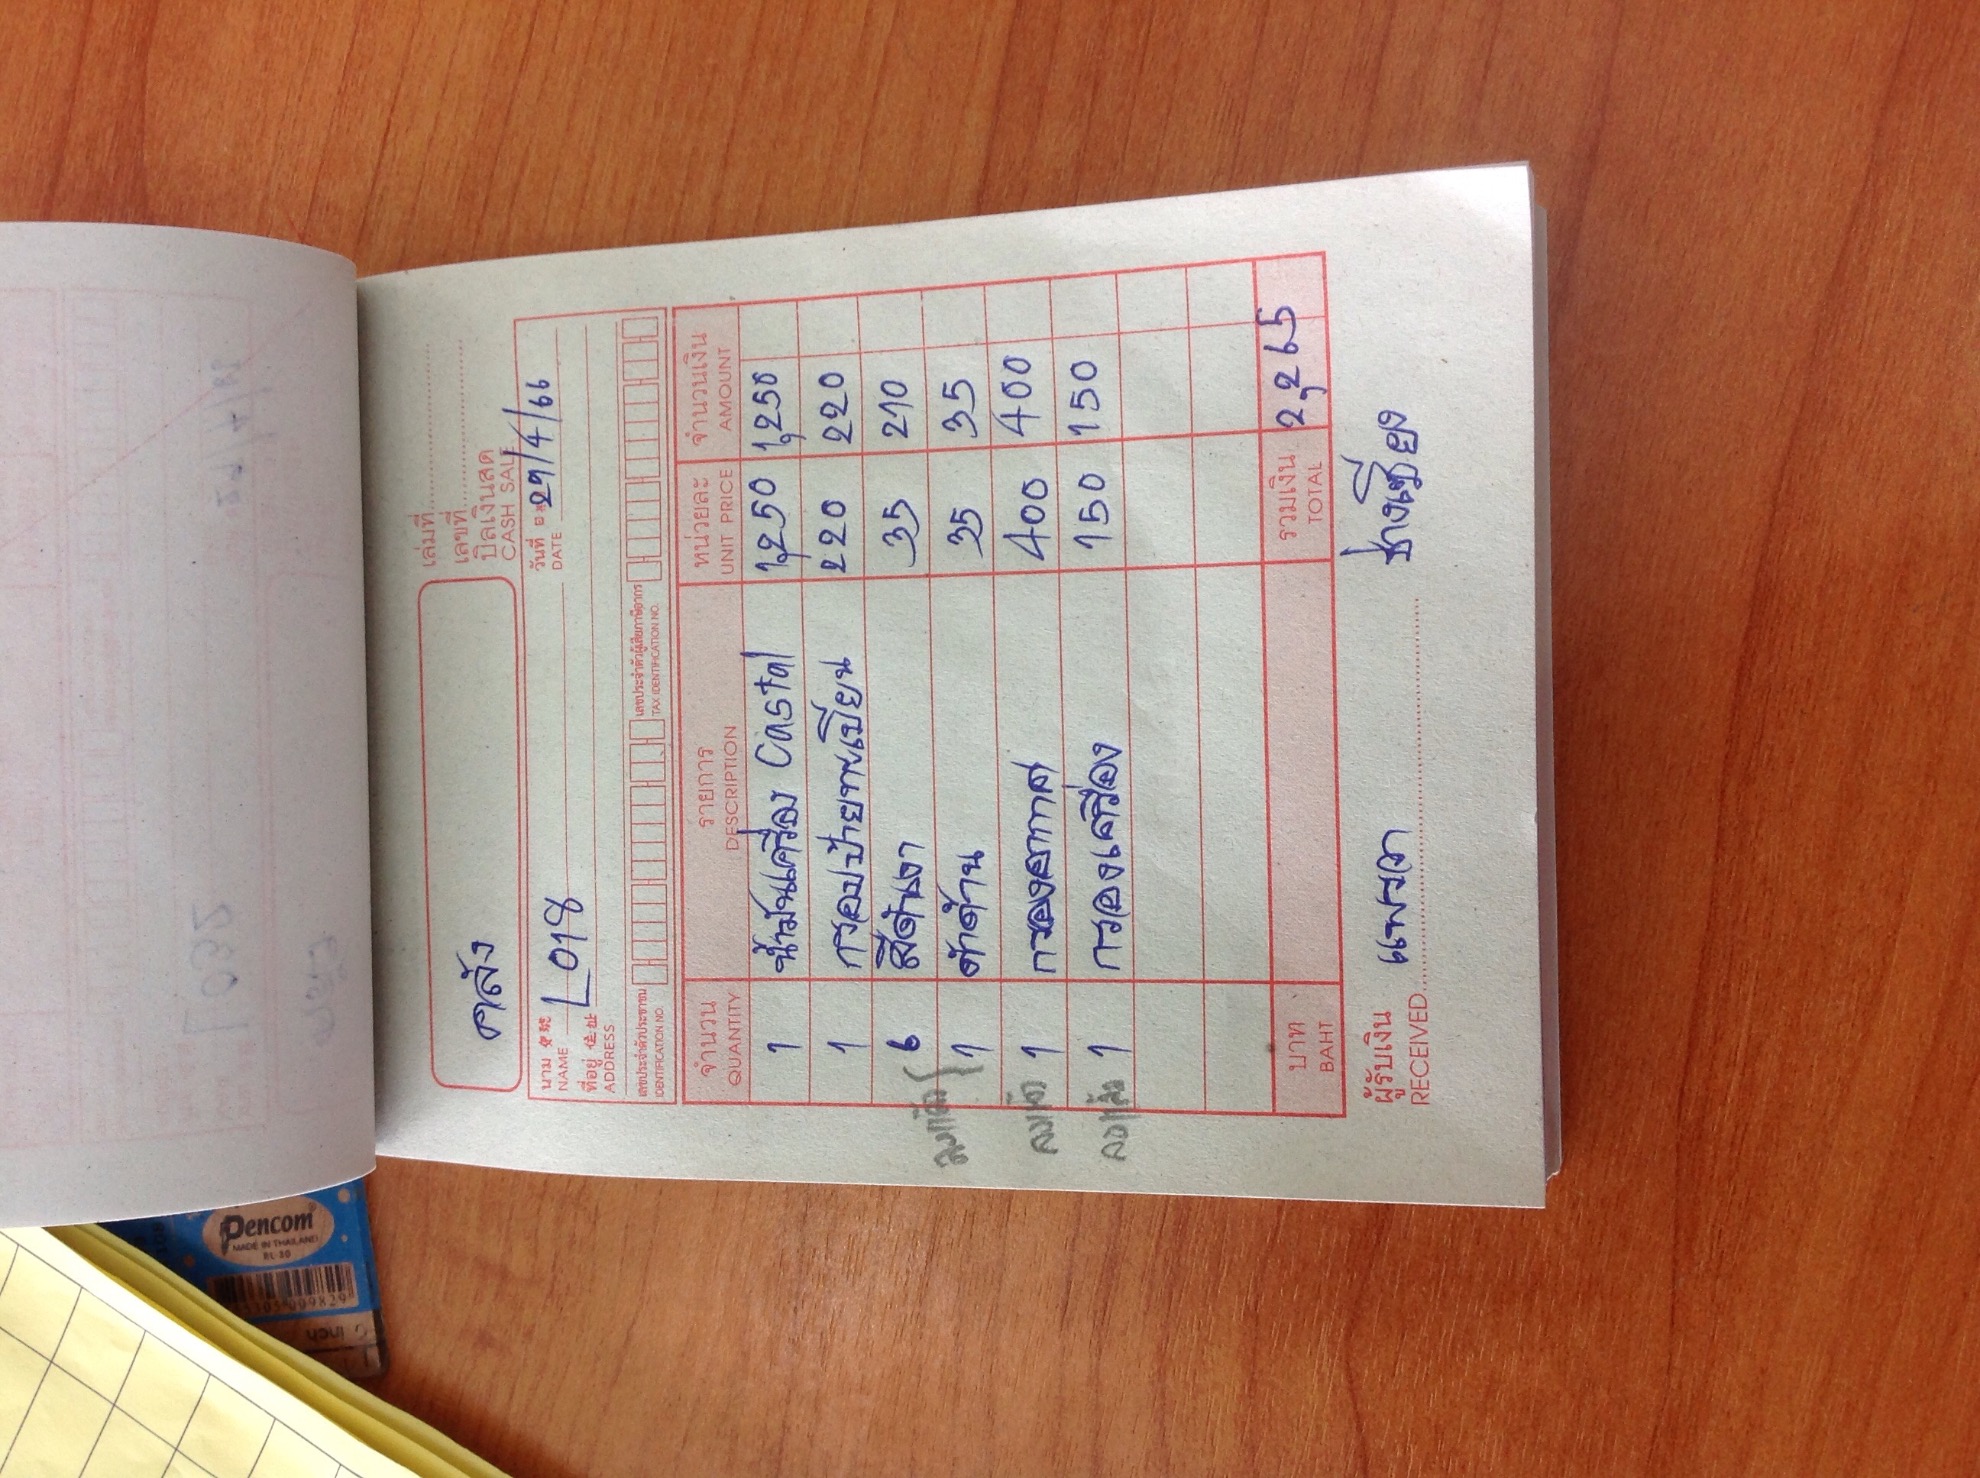 เล่มที่
เลขที่
บิลเงินสด
CASH SALE
คลัง
นาม
NAME
L018
วันที่
DATE
29/4/66
ที่อยู่ 住址
ADDRESS
เลขประจำตัวประชาชน
IDENTIFICATION NO.
เลขประจำตัวผู้เสียภาษีอากร
TAX IDENTIFICATION NO.
จำนวน รายการ หน่วยละ จำนวนเงิน
QUANTITY DESCRIPTION UNIT PRICE AMOUNT
1 น้ำมันเครื่อง Castal 1,250 1,250
1 กรอบป้ายทะเบียน 220 220
6 สีดำเงา 35 210
1 ดำด้าน 35 35
ลงแล้ว
1 กรองอากาศ 400 400
ลงแล้ว
1 กรองเครื่อง 150 150
ลงแล้ว
บาท รวมเงิน 2,265
BAHT TOTAL
ผู้รับเงิน แพรวา ช่างเชียง
RECEIVED
Pencom
MADE IN THAILAND
RL-30
inch